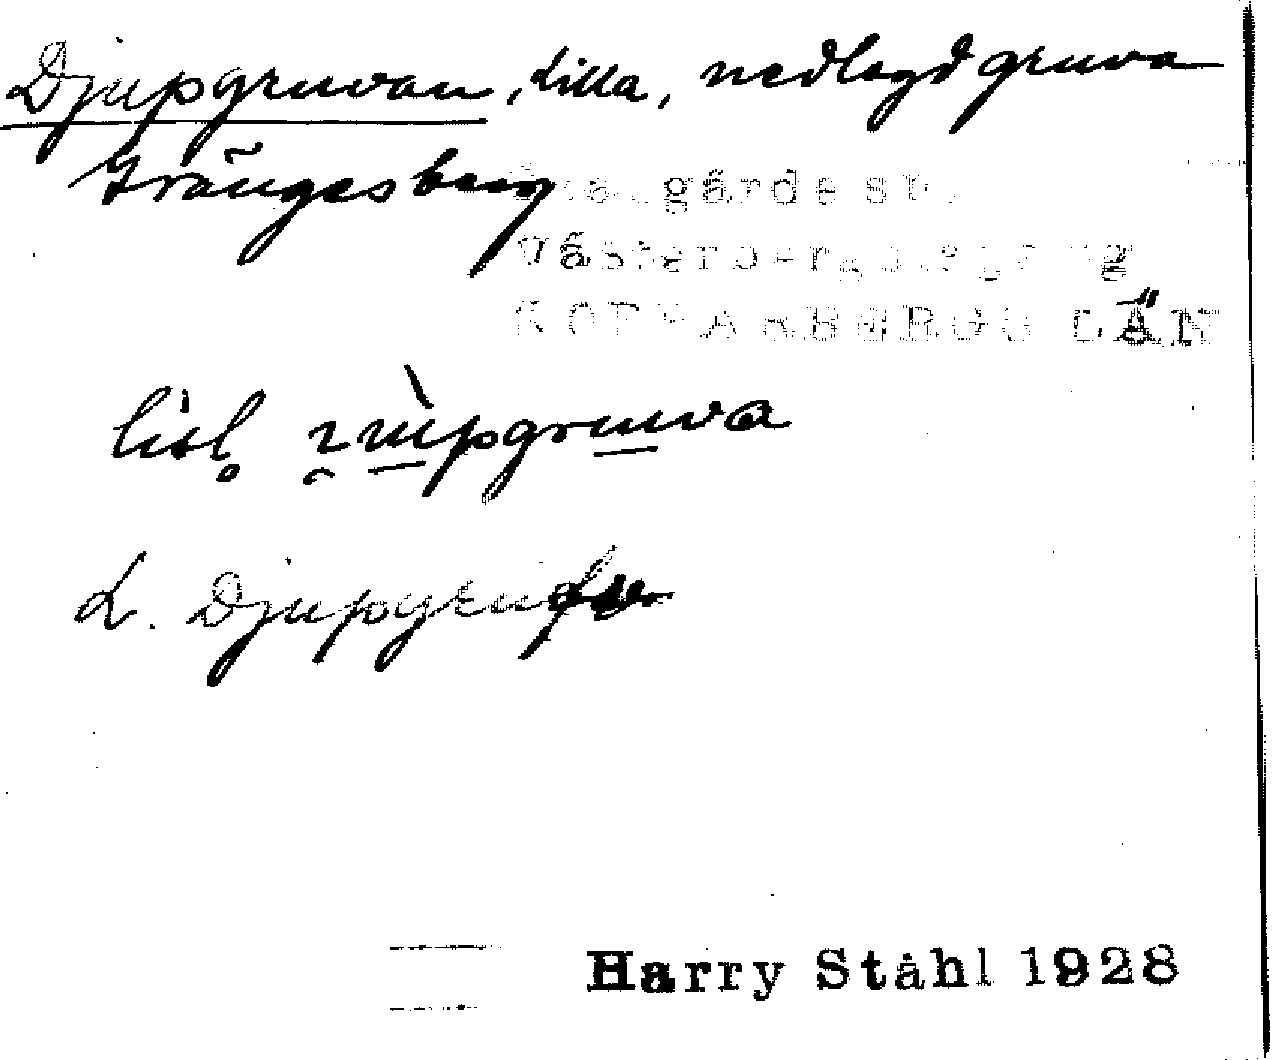 Djupgruvan, Lilla, nedlagd gruva
Grängesberg
Grangärde sn.
Västerbergslags tg
KOPPARBERGS LÄN
L. Djupgruv
Harry Ståhl 1928